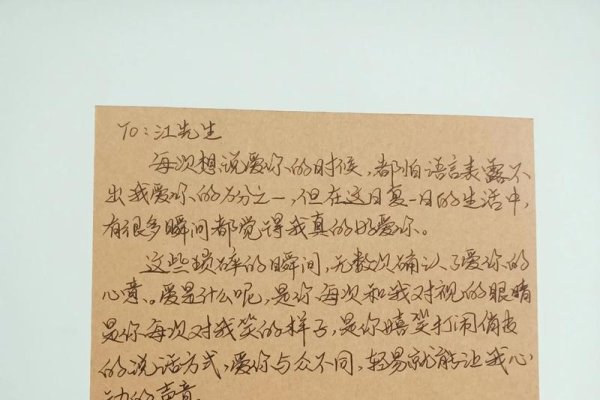 To:江先生
每次想说爱你的时候,都怕语言表露不
出我爱你的万分之一,但在这日复一日的生活中,
有很多瞬间都觉得我真的好爱你。
这些琐碎的瞬间,无数次确认了爱你的
心意。爱是什么呢,是你每次和我对视的眼睛
是你每次对我笑的样子,是你嬉笑打闹俏皮
的说话方式,爱你与众不同,轻易就能让我心
动的声音